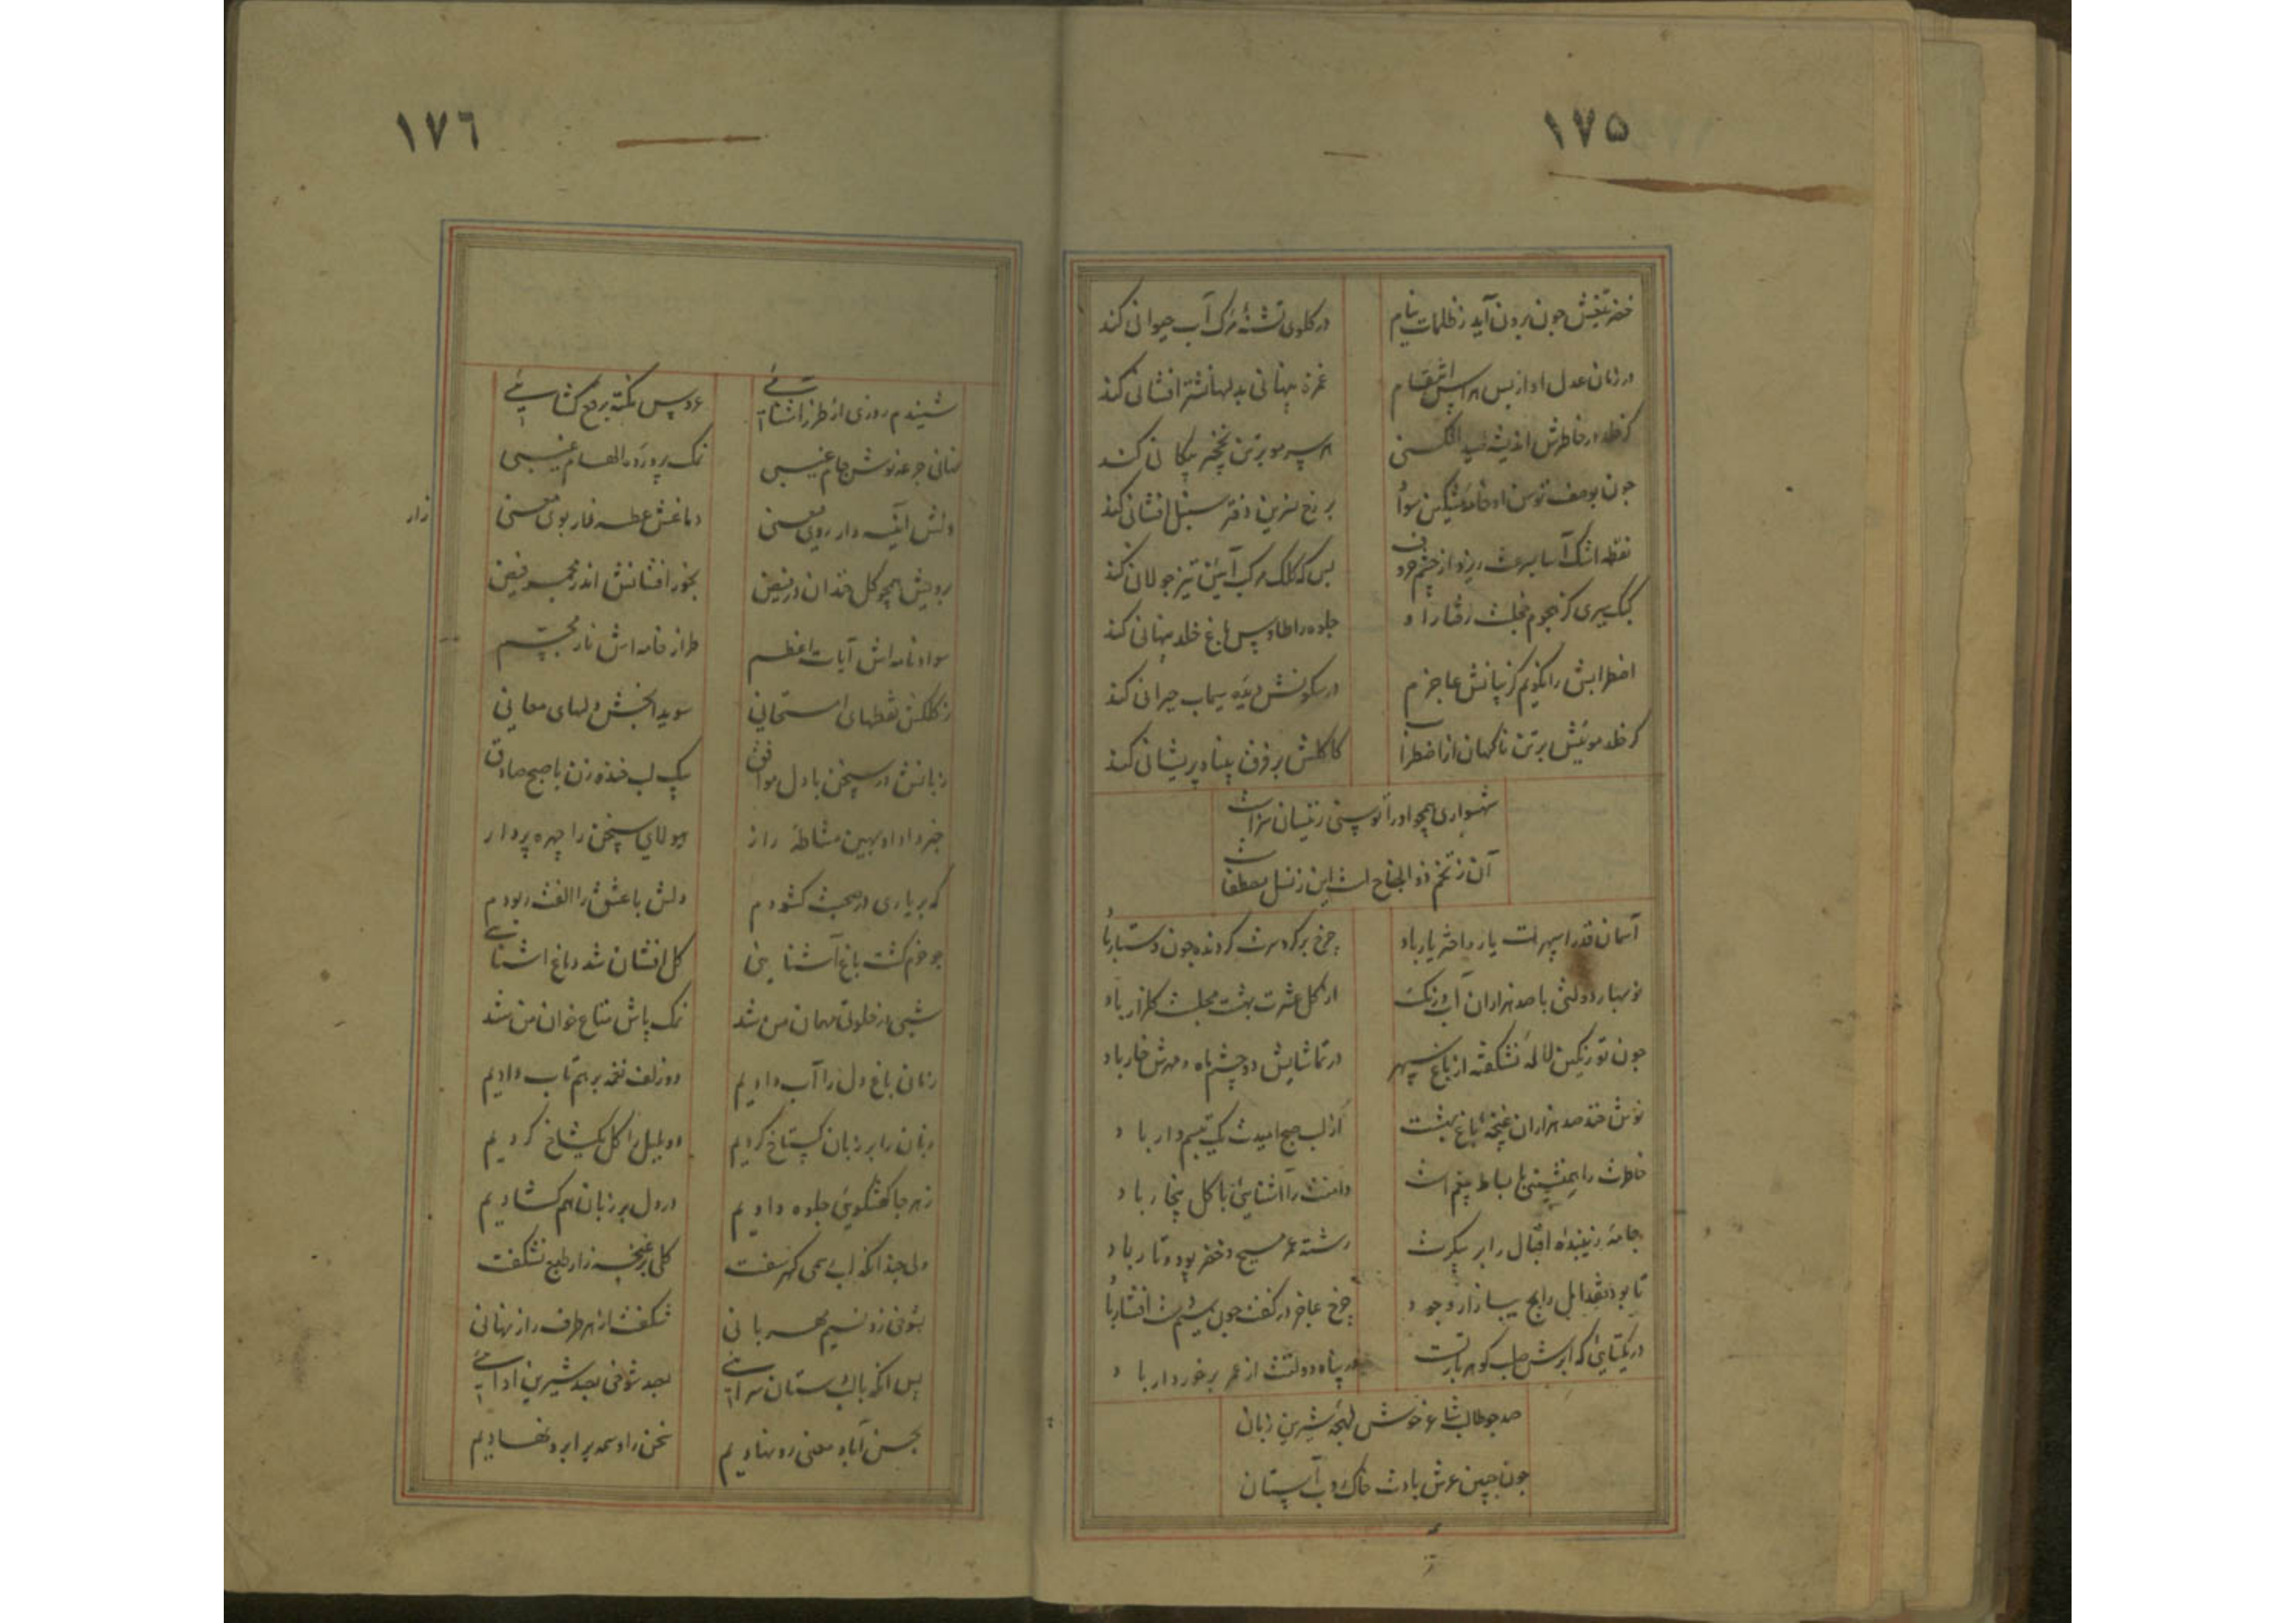 ١٧٥
خضر تیغش چون برون آید ز ظلمات نیام در گلوی تشنهٔ مرک آب حیوانی کند
در زمان عدل او از بس هراس انتقام غمزه پنهانی بدلها نشتر افشانی کند
کر خلد در خاطرش اندیشهٔ صید افکنی هر سر مو بر تن نخچیر پیکانی کند
چون بوصف توسن او خامهٔ مشکین سواد بر رخ نسرین دفتر سنبل افشانی کند
نقطه اشک آسا بسرعت ریزد از چشم حروف بس که کلک مرکب آیین تیز جولانی کند
کبک سیری کز هجوم خجلت رفتار او جلوه را طاوس باغ خلد پنهانی کند
اضطرابش را نکویم کز بیانش عاجزم در سکونش دیدهٔ سیماب حیرانی کند
کر خلد مویش بر تن ناکهان از اضطراب کاکلش بر فرق پیدا و پریشانی کند
شهسواری همچو او را توسنی زینسان سزاست
آن ز تخم ذوالجناح است این ز نسل مصطفاست
آسمان قدرا سپهرت یار و اختر یار باد چرخ بر کرد سرت کردنده چون دستار باد
نوبهار دولتش با صد هزاران آب و رنک از کل عشرت بهشت مجلست کلزار باد
چون تو رنکین لالهٔ نشکفته از باغ سپهر در تماشایش دو چشم ماه و مهرش خار باد
نوش خند صد هزاران غنچهٔ باغ بهشت از لب صبح امیدت یک تبسم وار باد
خاطرت را همنشینی با بساط بیغم است دامنت را آشنایی با کل بیخار باد
جامهٔ زیبندهٔ اقبال را بر پیکرت رشتهٔ عمر مسیح و خضر پود و تار باد
تا بود نقد امل رایج ببازار وجود چرخ عاجز در کفت چون مشت افشار باد
در یکتایی که ابرش صلب کوهر بار تست در پناه دولتت از عمر برخوردار باد
صد چو طالب شاعر خوش لهجهٔ شیرین زبان
چون جبین عرش بادت خاک روب آستان
١٧٦
شنیدم روزی از طرز آشنائی عروس نکته برقع کشائی
سنانی جرعه نوش جام غیبی نمک پروردهٔ الهام غیبی
دلش آینه دار روی معنی دماغش عطسه زار بوی معنی
زار
برویش همچو کل خندان در فیض بخور افشانش اندر مجمر فیض
سواد نامه اش آیات اعظم طراز خامه اش نار مجسم
ز کلکش نقطهای امتحانی سویدا بخش دلهای معانی
زبانش در سخن با دل موافق بیک لب خنده زن با صبح صادق
خرد داد او بهین مشاطهٔ راز هیولای سخن را چهره پرداز
که بر یاری در صحبت کشودم دلش با عشق را الفت ربودم
چو خرم کشت باغ آشنایی کل افشان شد دماغ آشنایی
شبی در خلوتی مهمان من شد نمک پاش متاع خوان من شد
زمانی باغ دل را آب دادیم دو زلف نغمه بر هم تاب دادیم
زبان را بر زبان کستاخ کردیم دو بلبل را کل یکشاخ کردیم
ز هر جا کفتکویی جلوه دادیم در دل بر زبان هم کشادیم
ولی چندانکه لب می کهر سفت کلی بر غنچه زار طبع نشکفت
بشوخی زد نسیم مهربانی شکفت از هر طرف راز نهانی
پس آنکه با لب دستان سرائی بصد شوخی بصد شیرین ادائی
بحسن آباد معنی رو نهادیم سخن را وسمه بر ابرو نهادیم